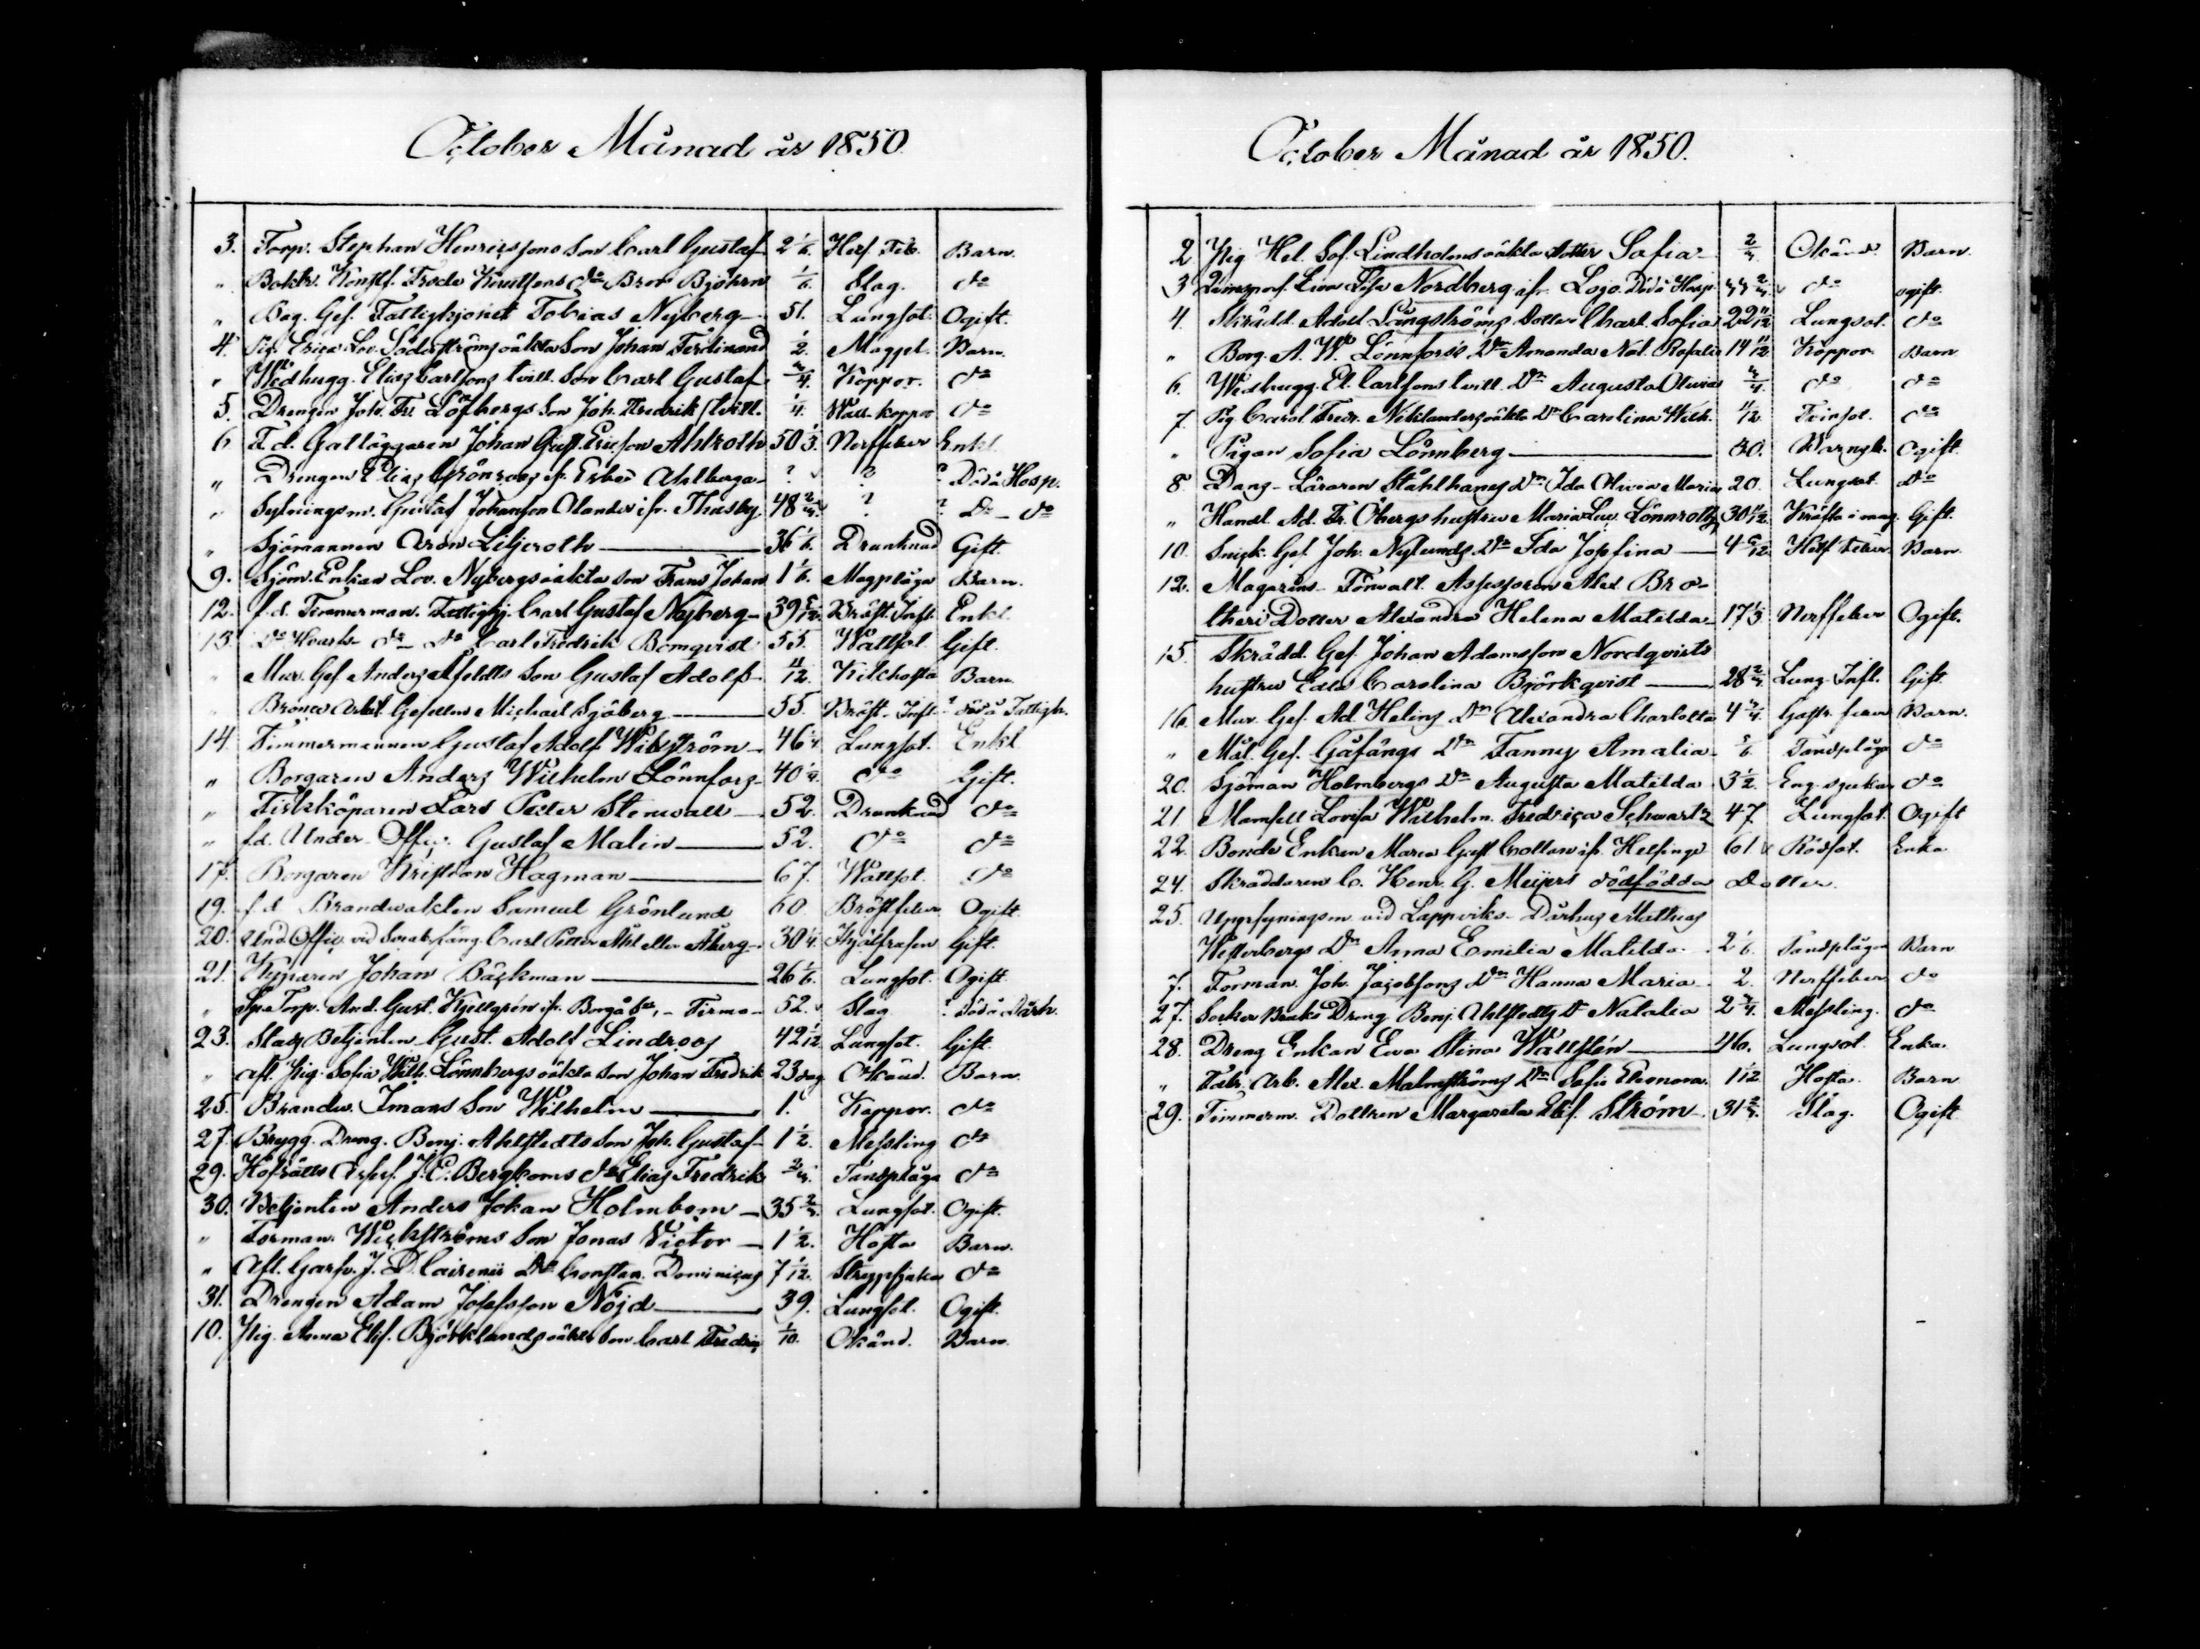 October Månad år 1850.
3. Torp. Stephan Henricssons Son Carl Gustaf 2 1/6. Hetf. Feb. Barn.
" Boktr. Konstf. Frode Knutsens do Bror Björhen 1/6. Slag. do
" Bag. Ges. Fattighjonet Tobias Nyberg 51. Lungsot. Ogift.
4. Pig. Erica Lov. Söderströms oäkta Son Johan Ferdinand 1/2. Magpl. Barn.
" Wedhugg. Elias Carlsons tvill. Son Carl Gustaf 3/4. Koppor. do
5. Drengen Joh. Fr. Löfbergs Son Joh. Fredrik (tvill. 1/4. Watt. koppor do
6 F.d. Gatläggaren Johan Gust. Ericson Ahlroth 50 1/3. Nerffeber Enkl.
" Drengen Elias Grönroos ifr. Esbo Ahlberga ? ? ? Död å Hosp.
" Sytningsm. Gustaf Johanson Olander ifr. Thusby 48 2/3. ? ? Do - do
" Sjömannen Aron Liljeroth 36 1/6. Drunknad Gift.
9. Sjöm. Enkan Lov. Nybergs oäkta son Frans Johan 1 1/6. Magplåga Barn.
12. f.d. Timmerman. Fattighj. Carl Gustaf Nyberg 39 5/12. Bröst. Infl. Enkl.
13. do do do Carl Fredrik Bomqvist 55. Wattsot Gift.
" Mur. Ges. Anders Afeldts Son Gustaf Adolf 11/12. Kikhosta Barn.
" Arbet. Gesellen Michael Sjöberg 55. Bröst. Infl. ? Död å Fattigh.
14. Timmermannen Gustaf Adolf Wikström 46 1/4 Lungsot. Enkl.
" Borgaren Anders Wilhelm Lönnfors 40 1/4. do Gift.
" Fiskköparen Lars Peter Stenwall 52. Drunknad do
" f.d. Under-Offic. Gustaf Malin 52. do do
17. Borgaren Kristian Hagman 67. Wattsot. do
19. f.d. Brandwakten Samuel Grönlund 60 Bröstfeber Ogift.
20. Und. Offic. vid Carl Petter Åhl eller Åberg 30 1/4. Gift.
21. Kyparen Johan Bäckman 26 1/6. Lungsot. Ogift.
" Torp. And. Gust. Kjellgrén ifr. Borgå 52. Slag ? Död å Dårh.
23. Stads Betjenten Gust. Adolf Lindroos 42 1/12 Lungsot. Gift.
" Afl. Pig. Sofia Wilh. Lönnbergs oäkta son Johan Fredrik 23 dag. Okänd. Barn.
25. Brandw. Imans Son Wilhelm 1. Koppor. do
27. Brygg. Dreng. Benj. Ahlstedts Son Joh. Gustaf 1 1/2 Messling do
29. Hofrätts Assess. J. E. Bergboms do Elias Fredrik 2/3. Tandplåga do
30. Betjenten Anders Johan Holmbom 35 2/3. Lungsot. Ogift.
" Forman. Wickströms Son Jonas Victor 1 1/2. Hosta Barn.
" Afl. Garfv. J. D. Cairenii do Constan. Dominicus 7 1/12. Strypsjuka do
31. Drengen Adam Josefsson Nöjd 39. Lungsot. Ogift.
10. Pig. Anna Elis. Björklunds oäkta Son Carl Fredric 1/10. Okänd. Barn.
October Månad år 1850.
2 Pig. Hel. Sof. Lindholms oäkta dotter Sofia 2/3 Okänd. Barn.
3 Lisa Nordberg ifr. Lojo. Död å Hosp. do ogift.
4. Skrädd. Adolf Långströms Dotter Charl. Sofia 22 11/12 Lungsot. do
" Borg. A. W. Lönnfors's Dr. Amanda Nat. Rosalia 14 11/12 Koppor. Barn
6. Wedhugg. El. Carlsons tvill. Dr. Augusta Olivia 3/4 do do
7. Pig. Carol. Fredr. Niklanders oäkta Dr Carolina Wilh. 11/12 Tvinsot. do
" Pigan Sofia Lönnberg 30. Barnsb. Ogift.
8 Dans-Läraren Ståhlhanes Dr. Ida Olivia Maria 20. Lungsot. do
" Handl. Ad. Fr. Öbergs hustru Maria Lov. Lönnroth 30 11/12. Kräfta i mag. Gift.
10. Snick. Ges. Joh. Nylunds Dr Ida Josefina 4 5/12 Hetf. feber Barn.
12. Magazins-Förvalt. Assessoren Alex. Bro-
theri Dotter Alexandra Helena Matilda 17 1/3 Nerffeber Ogift.
15. Skrädd. Ges. Johan Adamsson Nordqvists
hustru Edla Carolina Björkqvist 28 2/3 Lung. Infl. Gift.
16. Mur. Ges. Ad. Helins Dr Alexandra Charlotta 4 3/4. Gastr. feber Barn.
" Mål. Ges. Gåfängs Dr Fanny Amalia 5/6 Tandplåga do
20. Sjöman Holmbergs Dr Augusta Matilda 3 1/2. Eng. sjukan do
21. Mamsell Lovisa Wilhelm. Fredrica Schwartz 47 Lungsot. Ogift
22. Bonde Enkan Maria Gust. Cottan ifr. Helsinge 61 Rödsot. Enka
24. Skräddaren C. Henr. G. Meijers dödfödda Dotter.
25. Uppsyningsm. vid Lappviks-Dårhus Mathias
Westerbergs Dr Anna Emilia Matilda 2 1/6. Tandplåga Barn
7. Forman. Joh. Jacobsons Dr Hanna Maria 2. Nerffeber do
27. Socker Bruks Dreng Benj. Ahlstedts D. Natalia 2 3/4. Messling. do
28. Dreng Enkan Eva Stina Wallstén 46. Lungsot. Enka.
" Fabr. Arb. Alex. Malmströms Dr Sofia Eleonora 1 1/12 Hosta. Barn
29. Timmerm. Dottren Margareta Elis. Ström 31 2/3. Slag. Ogift